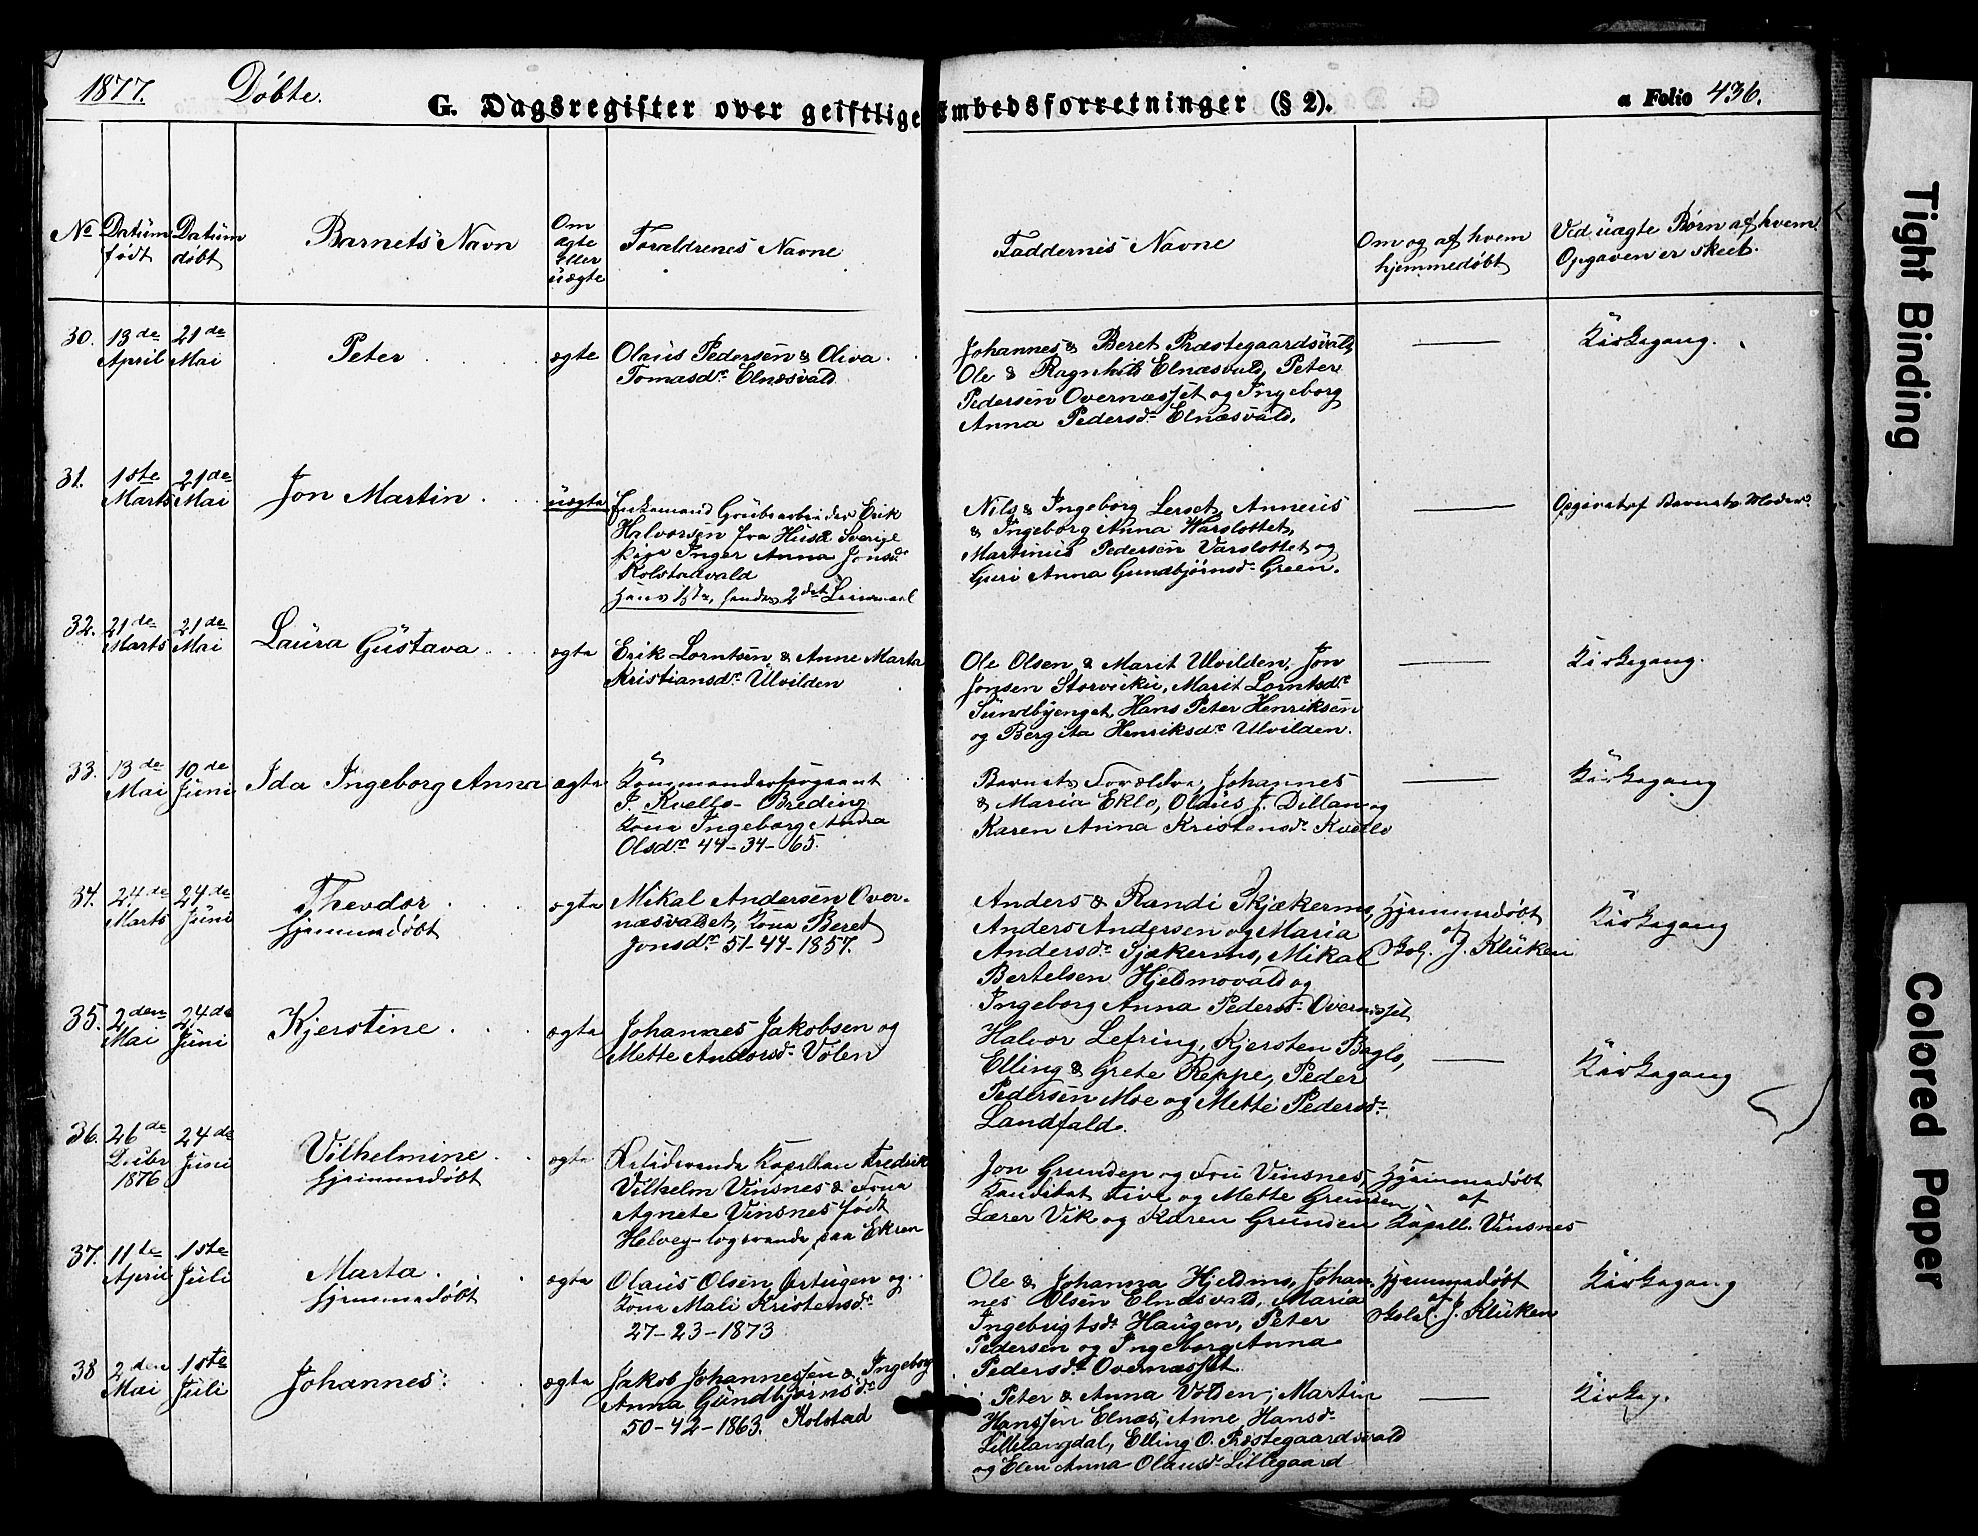 1877. Døbte.
G. Dagsregister over geistlige Embedsforretninger (§ 2).
a Folio 436.
No
Datum født
Datum døbt
Barnets Navn
Om ægte eller üægte
Forældrenes Navne
Faddernes Navne
Om og af hvem hjemmedøbt
Ved üægte Børn af hvem Opgaven er skeet.
30. 13de April 21de Mai Peter ægte
Olaus Pedersen & Oliva
Tomasdr Elnæsvald
Johannes & Beret Præstegaardsvald,
Ole & Ragnhild Elnæsvald, Peter
Pedersen Overnæsset og Ingeborg
Anna Pedersdr Elnæsvald.
Kirkegang.
31. 1ste Marts 21de Mai Jon Martin üægte
Enkemand Grubearbeider Erik
Halvorsen fra Huså Sverige
Pige Inger Anna Jonsdr
Kolstadvald
hans 1ste, hendes 2det Leiermaal
Nils & Ingeborg Lerset, Anneus
& Ingeborg Anna Varslottet,
Martinus Pedersen Varslottet og
Guri Anna Gundbjørnsdr Green.
Opgivet af Barnets Moder
32. 21de Marts 21de Mai Laura Güstava ægte
Erik Lorntsen & Anne Marta
Kristiansdr Ulvilden
Ole Olsen & Marit Ulvilden, Jon
Jonsen Storvuku, Marit Lorntsdr
Sundbyenget, Hans Peter Henriksen
og Bergita Henriksdr Ulvilden.
Kirkegang.
33. 13de Mai 10de Juni Ida Ingeborg Anna ægte
Kommandersergeant
J. Kvello- Breding
Kone Ingeborg Anna
Olsdr 44-34-65.
Barnets Forældre, Johannes
& Maria Eklo, Olaus J. Dillan og
Karen Anna Kristensdr Kvello
Kirkegang
34. 24de Marts 24de Juni Theodor
Hjemmedøbt
ægte
Mikal Andersen Over-
næsvaldet, Kone Beret
Jonsdr 51-44-1857.
Anders & Randi Skjækermo,
Anders Andersen og Maria
Andersdr Sjækermo, Mikal
Bertelsen Hjelmovald og
Ingeborg Anna Pedersdr Overnæsset
Hjemmedøbt
af
Skol. J. Klüken
Kirkegang
35. 2den Mai 24de Juni Kjerstine ægte
Johannes Jakobsen og
Mette Andersdr Volen
Halvor Lefring, Kjersten Baglo,
Elling & Grete Reppe, Peder
Pedersen Moe og Mette Pedersdr
Landfald.
Kirkegang
36. 26de Decbr 1876 24de Juni Vilhelmine
Hjemmedøbt
ægte
Residerende Kapellan Fredrik
Vilhelm Vinsnes & Frue
Agnete Vinsnes født
Helvey- logerende paa Ekren
Jon Grunden og Fru Vinsnes,
Kandidat Five og Mette Grunden
Lærer Vik og Karen Grunden
Hjemmedøbt
af
Kapell. Vinsnes
37. 11te April 1ste Juli Marta
Hjemmedøbt
ægte
Olaus Olsen Ørtugen og
Kone Mali Kristensdr
27-23-1873
Ole & Johanna Hjeldmo, Johan-
nes Olsen Elnæsvald, Maria
Ingebrigtsdr Haugen, Peter
Pedersen og Ingeborg Anna
Pedersdr Overnæsset.
Hjemmedøbt
af
Skolel. J. Klüken
Kirkegang
38 2den Mai 1ste Juli Johannes ægte
Jakob Johannessen & Ingeborg
Anna Gundbjørnsdr
50-42-1863. Kolstad
Peter & Anna Volden, Martin
Hanssen Elnæs, Anne Hansdr
Lillelangdal, Elling O. Præstegaardsvald
og Elen Anna Olausdr Lillegaard
Kirkeg.
Tight Binding
Colored Paper